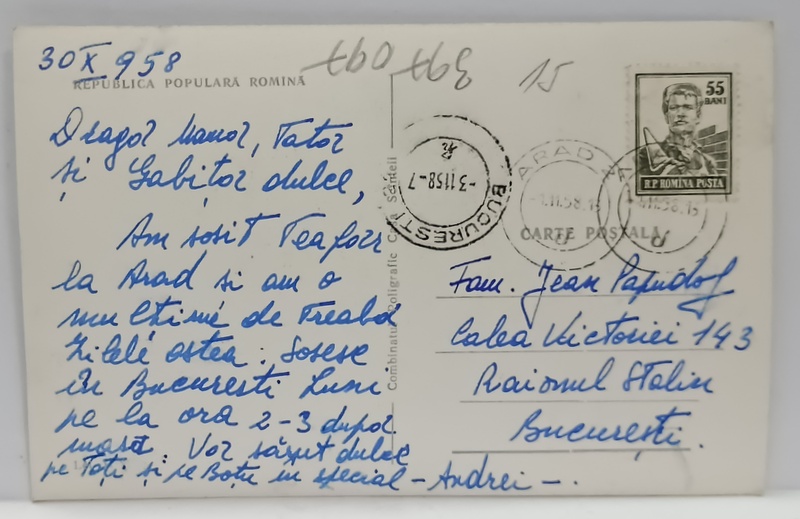 30 X 958
REPUBLICA POPULARĂ ROMÎNĂ
15
Dragoş Mamoş, Tatoş
şi Gabiţoş dulce,
Am sosit Teafăr
la Arad si am o
mulţime de Treabă
Zilele astea. Sosesc
în Bucureşti Luni
pe la ora 2-3 după
masă. Vă săruT dulce
pe Toţi şi pe Boţu în special - Andrei -.
Combinatul Poligrafic Casa Scînteii
BUCUREŞTI
-3 11 58-7
ARAD
55
BANI
R.P. ROMINA POSTA
CARTE POŞTALĂ
Fam. Jean Papudof
Calea Victoriei 143
Raionul Stalin
Bucureşti.